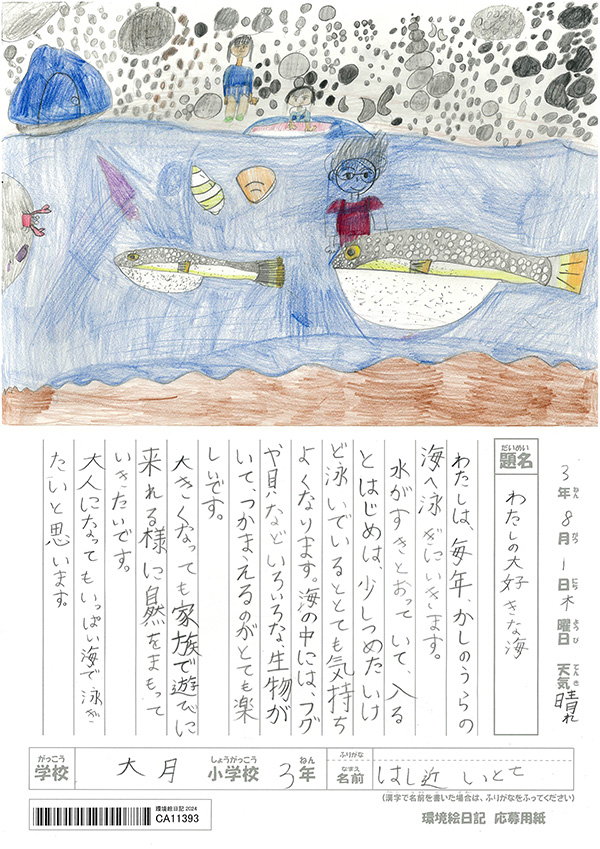 3年ねん 8月がつ 1日にち 木曜日ようび 天気てんき 晴れ
題名だいめい わたしの大好きな海
わたしは、毎年、かしのうらの
海へ泳ぎにいきます。
水がすきとおっていて、入る
とはじめは、少しつめたいけ
ど泳いでいるととても気持ち
よくなります。海の中には、フグ
や貝など、いろいろな、生物が
いて、つかまえるのがとても楽
しいです。
大きくなっても家族で遊びに
来れる様に自然をまもって
いきたいです。
大人になってもいっぱい海で泳ぎ
たいと思います。
学校がっこう 大月 小学校しょうがっこう 3年ねん
ふりがな
名前なまえ はし近 いとせ
(漢字で名前を書いた場合は、ふりがなをふってください)
環境絵日記2024
CA11393
環境絵日記 応募用紙